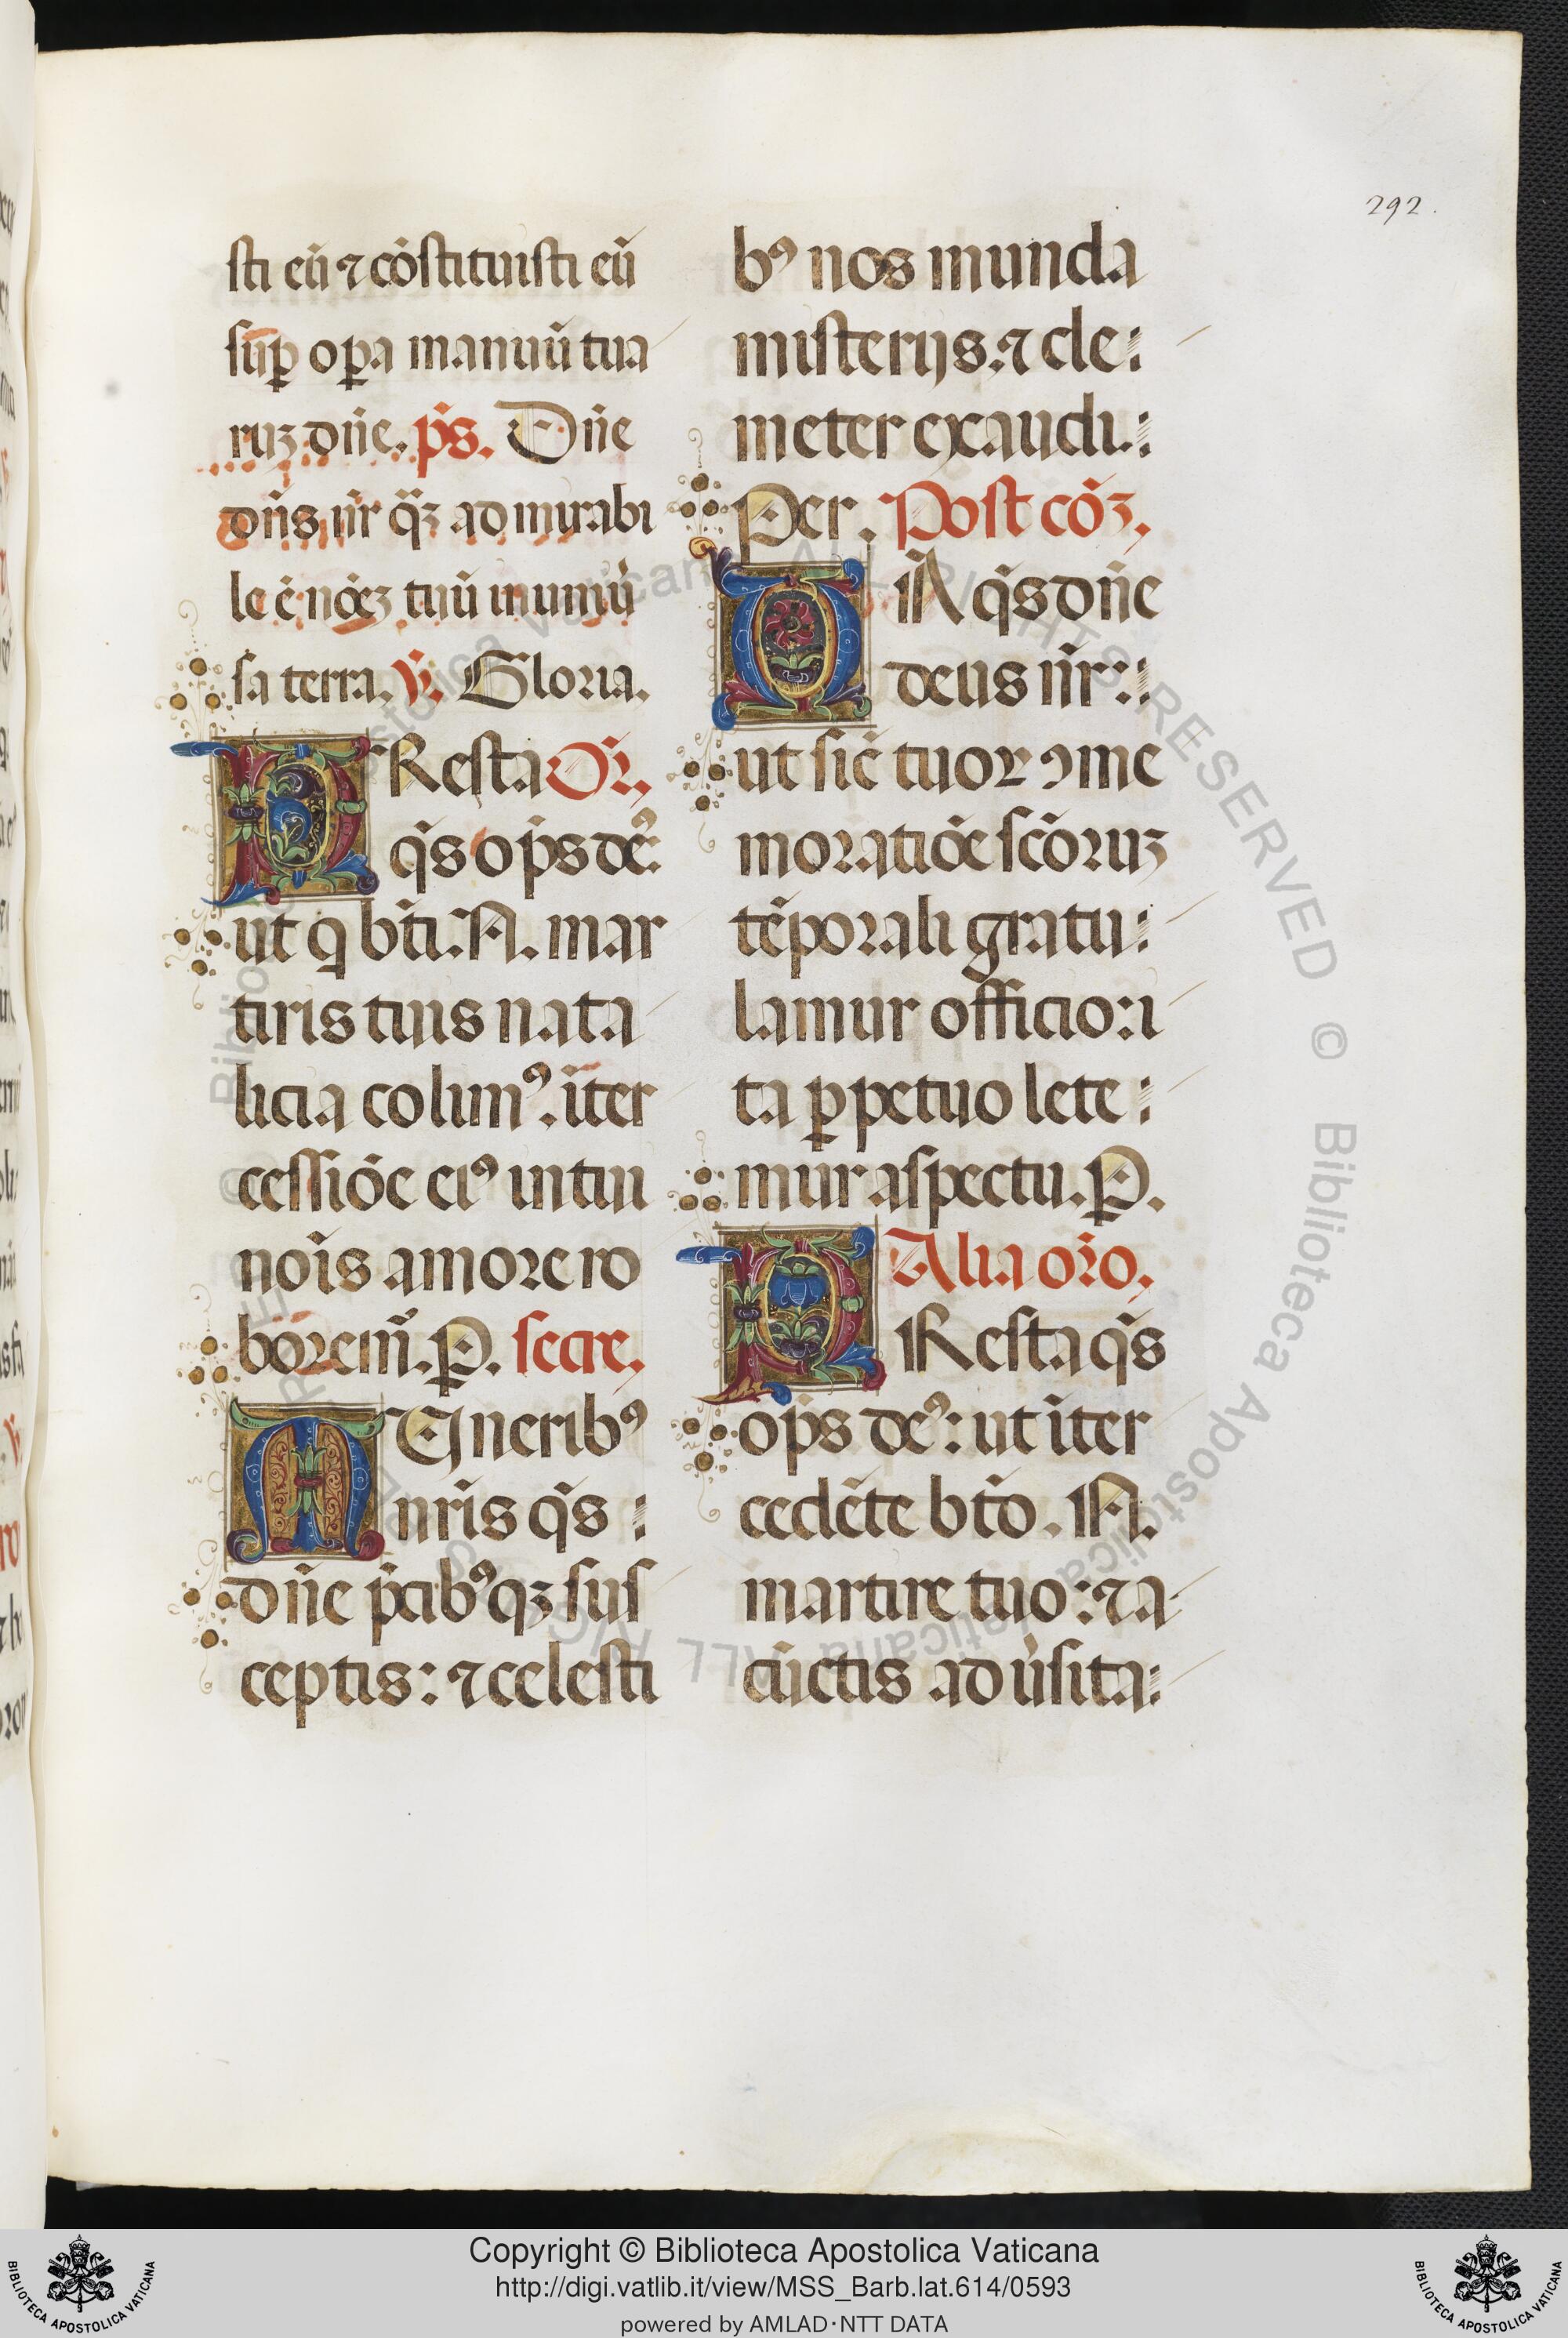 292.
sti eū ⁊ cōstituisti eū
sup̄ oꝑa manuū tua
ruꝫ dn̄e. ps̄. Dn̄e
dn̄s nr̄ qͣꝫ admirabi
le ē noēꝫ tuū ī unīu̇
sa terra. ℣. Gloria.
PResta Or̄.
qs̄ op̄s deꝰ:
ut q bt̄i. N. mar
tiris tui s nata
licia colimꝰ. īter
cessiōe eiꝰ in tui
nōis amore ro
borem̄. P. secre.
MUneribꝰ
nr̄is qs̄ :
dn̄e p̄cibꝰqꝫ sus
ceptis: ⁊ celesti
bꝰ nos munda
misterijs. ⁊ cle:
meter exaudi.:
Per. Post cōꝫ.
DA qs̄ dn̄e
deus nr̄:
ut sic̄ tuoꝝ ꝯme
moratiōe scōruꝫ
tēporali gratu:
lamur officio: i
ta ꝑpetuo lete:
mur aspectu. P.
Alia or̄o.
PResta qs̄
op̄s deꝰ: ut īter
cedēte bt̄o. N.
martire tuo: ⁊ a
cūctis adu̇sita:
Copyright © Biblioteca Apostolica Vaticana
http://digi.vatlib.it/view/MSS_Barb.lat.614/0593
powered by AMLAD·NTT DATA
BIBLIOTECA APOSTOLICA VATICANA
BIBLIOTECA APOSTOLICA VATICANA